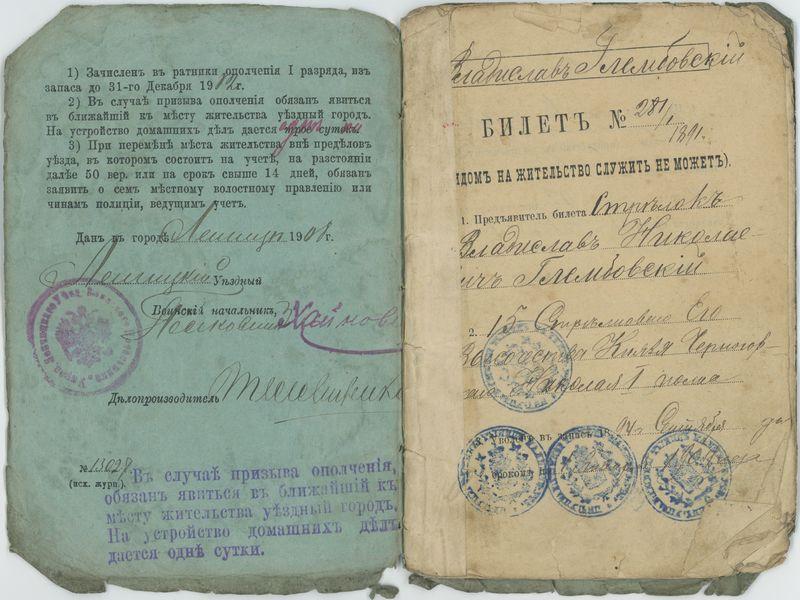 1) Зачисленъ въ ратники ополченія I разряда, изъ
запаса до 31-го Декабря 1912 г.
2) Въ случаѣ призыва ополченія обязан явиться
въ ближайшій къ мѣсту жительства уѣздный городъ.
На устройство домашнихъ дѣлъ дается трое сутокъ
3) При перемѣнѣ мѣста жительства внѣ предѣловъ
уѣзда, въ котором состоитъ на учетѣ, на разстояніи
далѣе 50 вер. или на срокъ свыше 14 дней, обязан
заявить о семъ мѣстному волостному правленію или
чинамъ полиціи, ведущимъ учет.
Данъ въ городѣ 1908 г.
Уѣздный
Воинскій начальникъ,
Дѣлопроизводитель
№ 13028
(исх. журн.)
Въ случаѣ призыва ополченія,
обязан явиться въ ближайшій къ
мѣсту жительства уѣздный городъ.
На устройство домашнихъ дѣлъ
дается однѣ сутки.
Владиславъ Глембовскій
БИЛЕТЪ № 281/1891.
ИДОМЪ НА ЖИТЕЛЬСТВО СЛУЖИТЬ НЕ МОЖЕТЪ).
1. Предъявитель билета Стрѣлокъ
Владиславъ Николае-
ичъ Глембовскій
2. 15 Стрѣлковаго Его
Высочества Князя Черногор-
Николая I полка
Уволенъ въ запасъ 94 г. Сентября
срокомъ